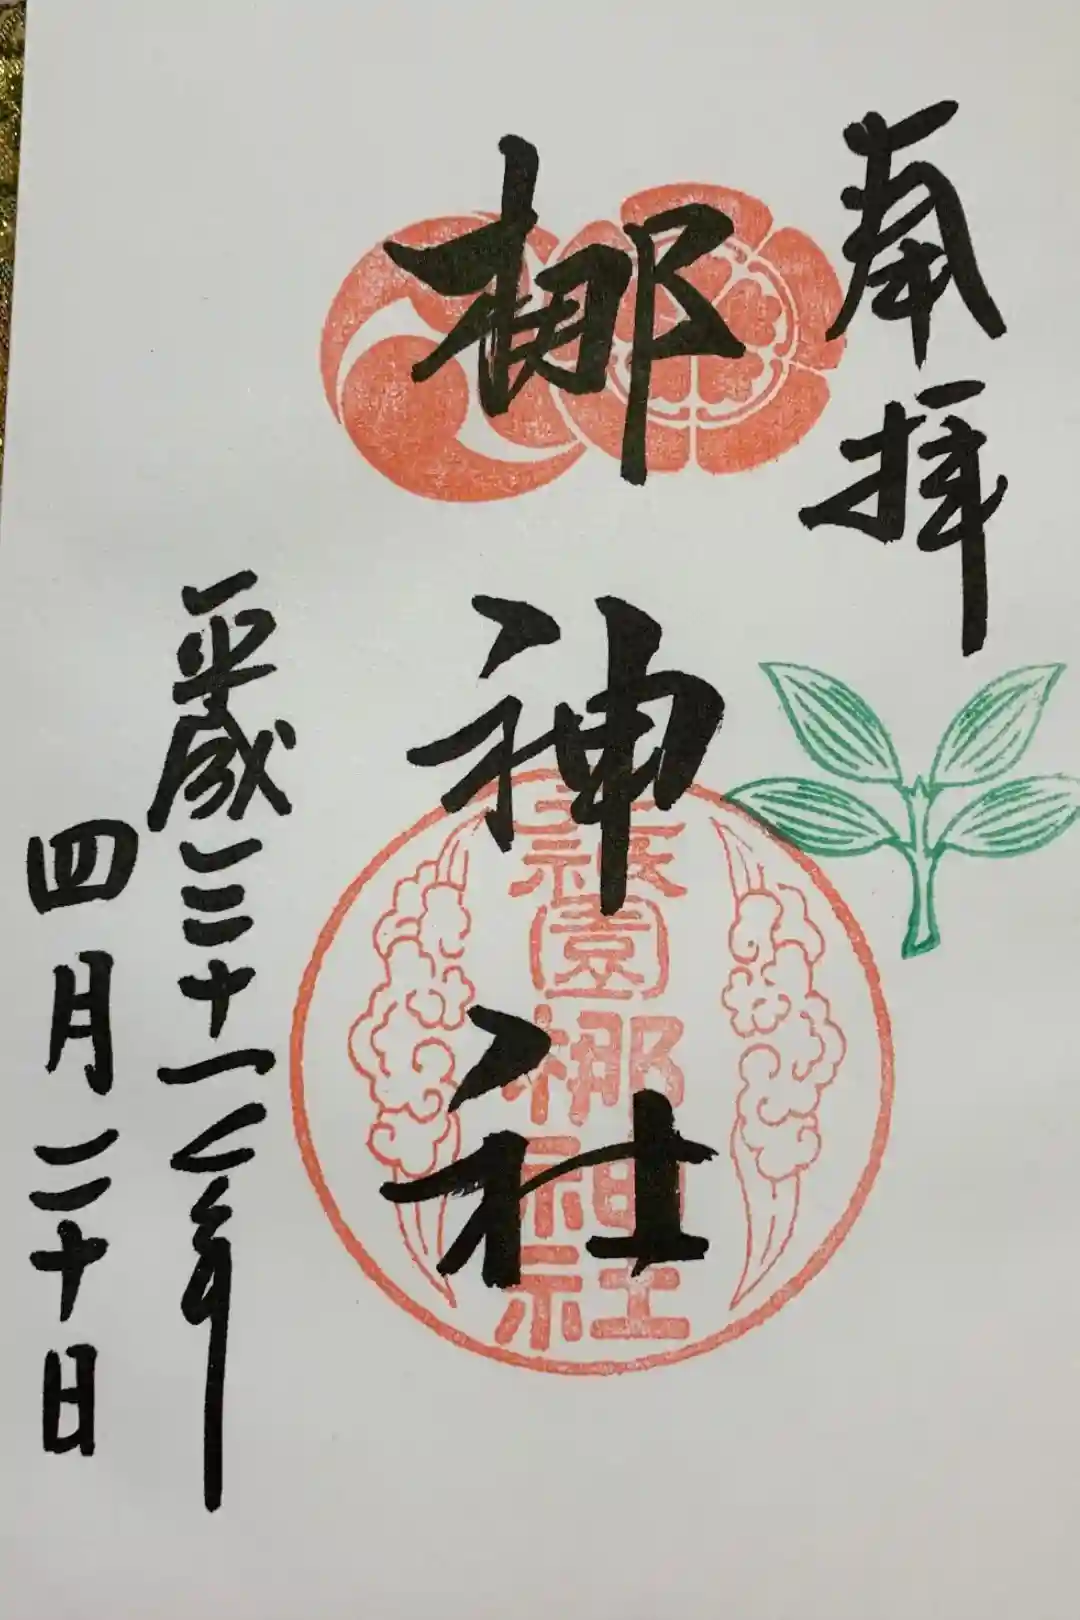 奉拝
梛神社
祇園梛神社
平成三十一年
四月二十日